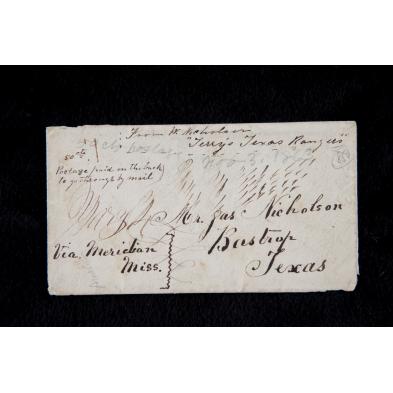 From W. Nicholson
"Terry's Texas Rangers"
50 cts.
Postage paid on the back
to go through by mail
Mr. Jas Nicholson
Bastrop
Texas
Via. Meridian
Miss.